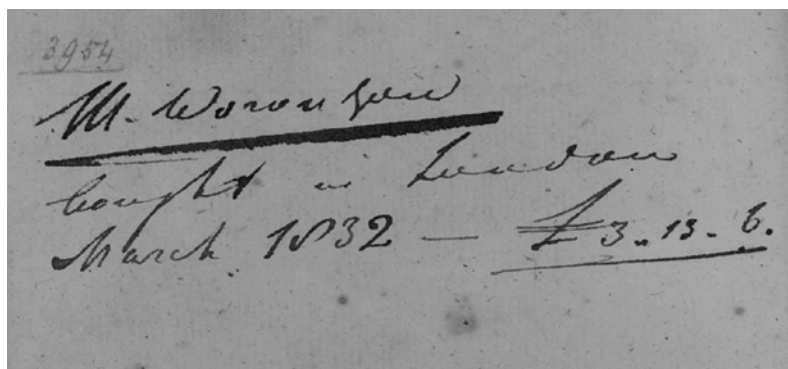 3954
M. Woronzow
bought in London
March 1832 — £3.13.6.